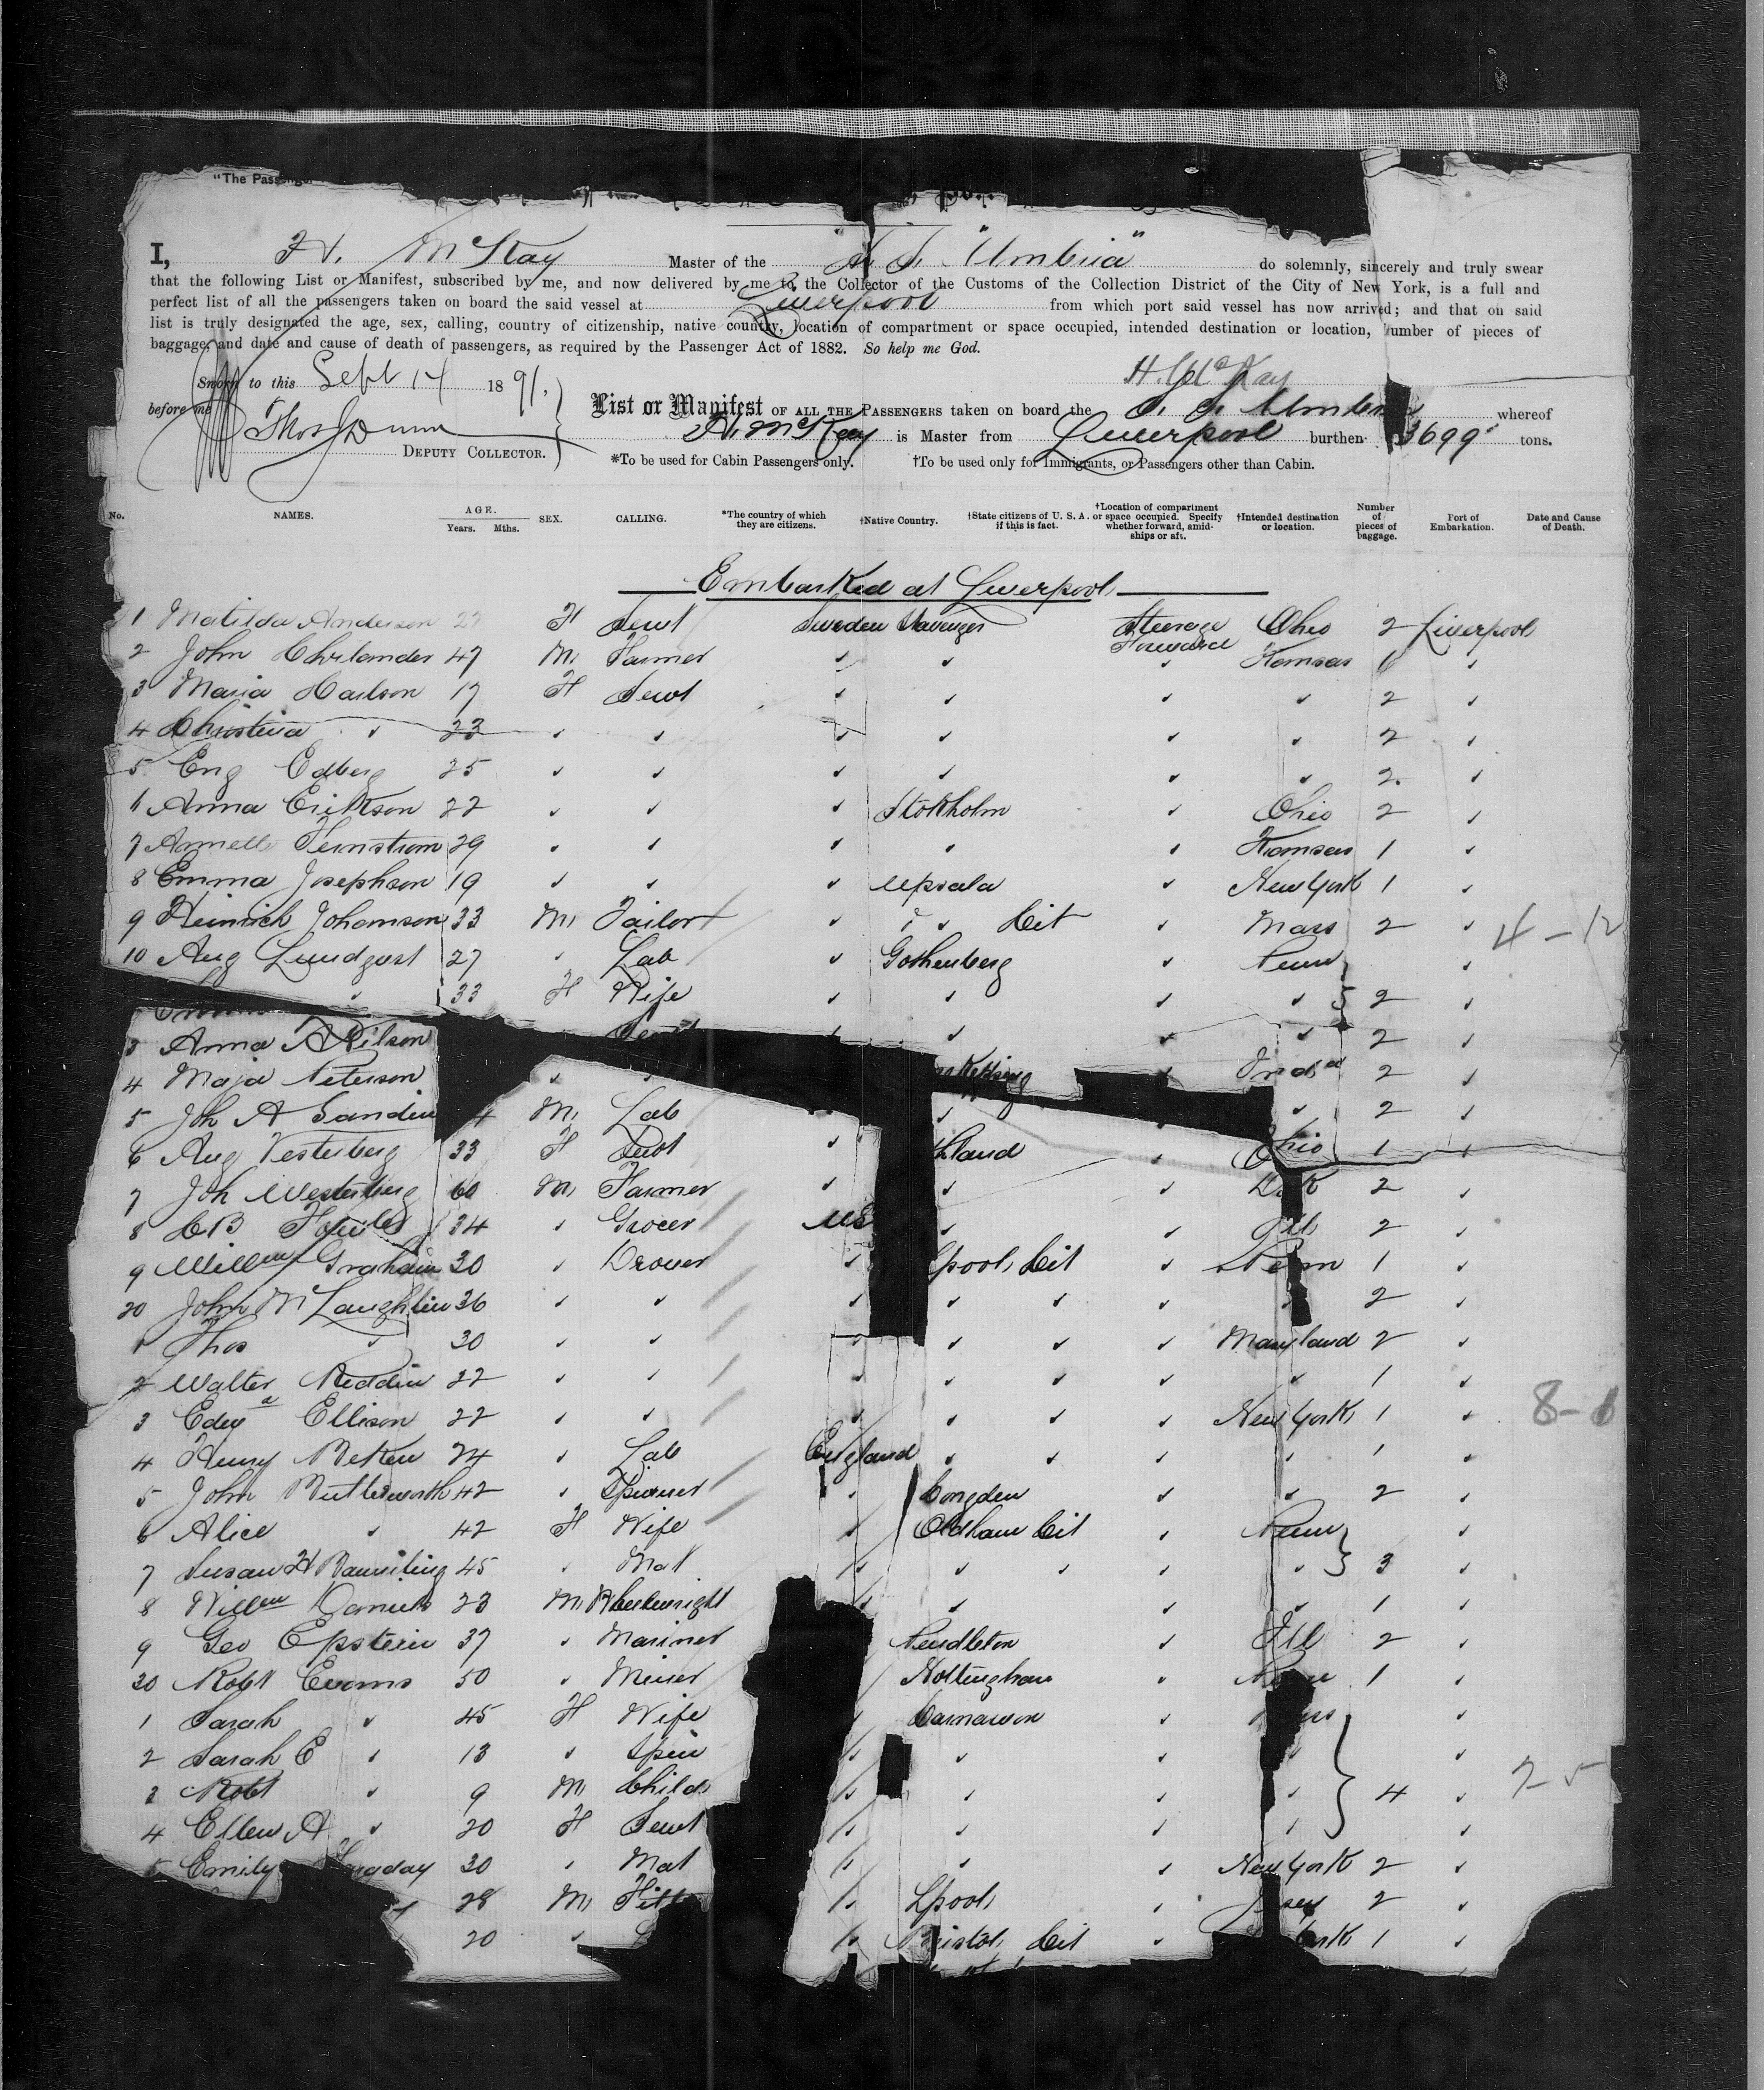 "The Passenger
I, H. McKay Master of the "S. S. "Umbria" do solemnly, sincerely and truly swear
that the following List or Manifest, subscribed by me, and now delivered by me to the Collector of the Customs of the Collection District of the City of New York, is a full and
perfect list of all the passengers taken on board the said vessel at Liverpool from which port said vessel has now arrived; and that on said
list is truly designated the age, sex, calling, country of citizenship, native country, location of compartment or space occupied, intended destination or location, number of pieces of
baggage, and date and cause of death of passengers, as required by the Passenger Act of 1882. So help me God.
Sworn to this Sept 14 1891. H. McKay
before me Thos J Dunn DEPUTY COLLECTOR.
List or Manifest OF ALL THE PASSENGERS taken on board the S. S. Umbria whereof
H. McKay is Master from Liverpool burthen 3699 tons.
*To be used for Cabin Passengers only. †To be used only for Immigrants, or Passengers other than Cabin.
No. NAMES. AGE. Years. Mths. SEX. CALLING. *The country of which they are citizens. †Native Country. †State citizens of U. S. A. if this is fact. †Location of compartment or space occupied. Specify whether forward, amidships or aft. †Intended destination or location. Number of pieces of baggage. Port of Embarkation. Date and Cause of Death.
Embarked at Liverpool
1 Matilda Anderson 27 F Sevt Sweden Stavenger Steerage Forward Ohio 2 Liverpool
2 John 47 M Farmer " " " Kansas 1 "
3 Maria Carlson 17 F Sevt " " " " 2 "
4 Christina " 23 " " " " " " 2 "
5 Eng Edberg 25 " " " " " " 2 "
6 Anna Erikson 22 " " " Stokholm " Ohio 2 "
7 Fernstrom 29 " " " " " Kansas 1 "
8 Emma Josephson 19 " " " Upsala " New York 1 "
9 Heinrich Johanson 33 M Tailor " " Cit " Mass 2 " 4-12
10 Aug Lundqvst 27 " Lab " Gothenberg " Penn "
" 33 F Wife " " " " 2 "
3 Anna A Nilson " " " " 2 "
4 Maja Peterson " " Ind 2 "
5 Joh A Sandin 4 M Lab " " " " 2 "
6 Aug Vesterberg 33 F Sevt " land " Ohio 1 "
7 Joh Westerberg 60 M Farmer " " " Dak 2 "
8 C B 34 " Grocer US " " Ill 2 "
9 Willm Graham 30 " Drover " Lpool Cit " Penn 1 "
20 John McLaughlin 36 " " " " " " 2 "
1 Thos " 30 " " " " " " Maryland 2 "
2 Walter Reddin 22 " " " " " " " 1 "
3 Edwd Ellison 22 " " " " " " New York 1 " 8-1
4 Henry 24 " Lab England " " " " 1 "
5 John Butterworth 42 " Spinner " Congden " " 2 "
6 Alice " 42 F Wife " Oldham Cit " Penn "
7 Susan H 45 " Mat " " " " " 3 "
8 Willm Daniels 23 M Wheelwright " " " " 1 "
9 Geo Epstein 37 " Mariner Pendleton " Ill 2 "
30 Robt Evans 50 " Miner Nottingham " 1 "
1 Sarah " 45 F Wife Carnarvon " "
2 Sarah E " 13 " Spin " " " " "
3 Robt " 9 M Child " " " " 4 " 7-5
4 Ellen A " 20 F Sevt " " " " "
5 Emily Faraday 30 " Mat " " " New York 2 "
28 M " Lpool " 2 "
20 " " Bristol Cit " York 1 "